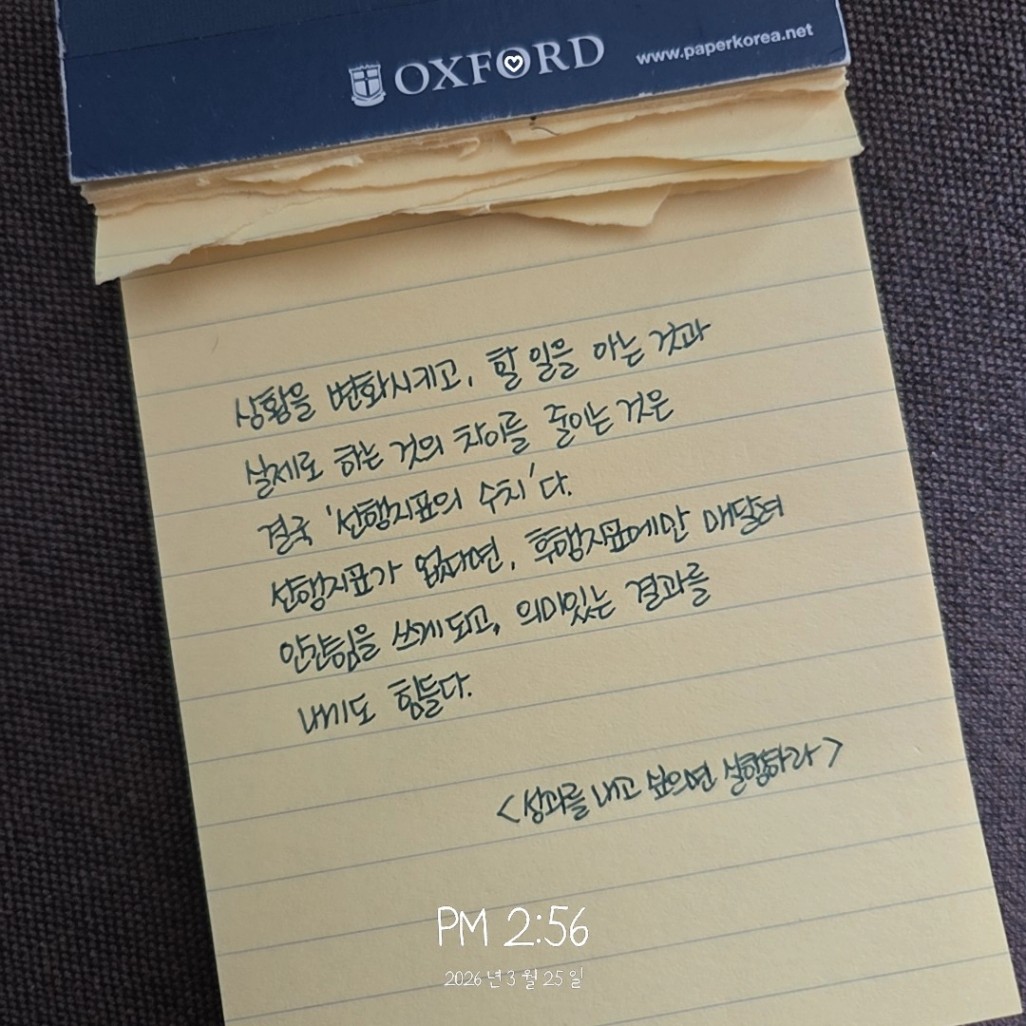 OXFORD www.paperkorea.net
상황을 변화시키고, 할 일을 아는 것과
실제로 하는 것의 차이를 줄이는 것은
결국 '선행지표의 수치'다.
선행지표가 없다면, 후행지표에만 매달려
안간힘을 쓰게 되고, 의미있는 결과를
내기도 힘들다.
<성과를 내고 싶으면 실행하라>
PM 2:56
2026년 3월 25일